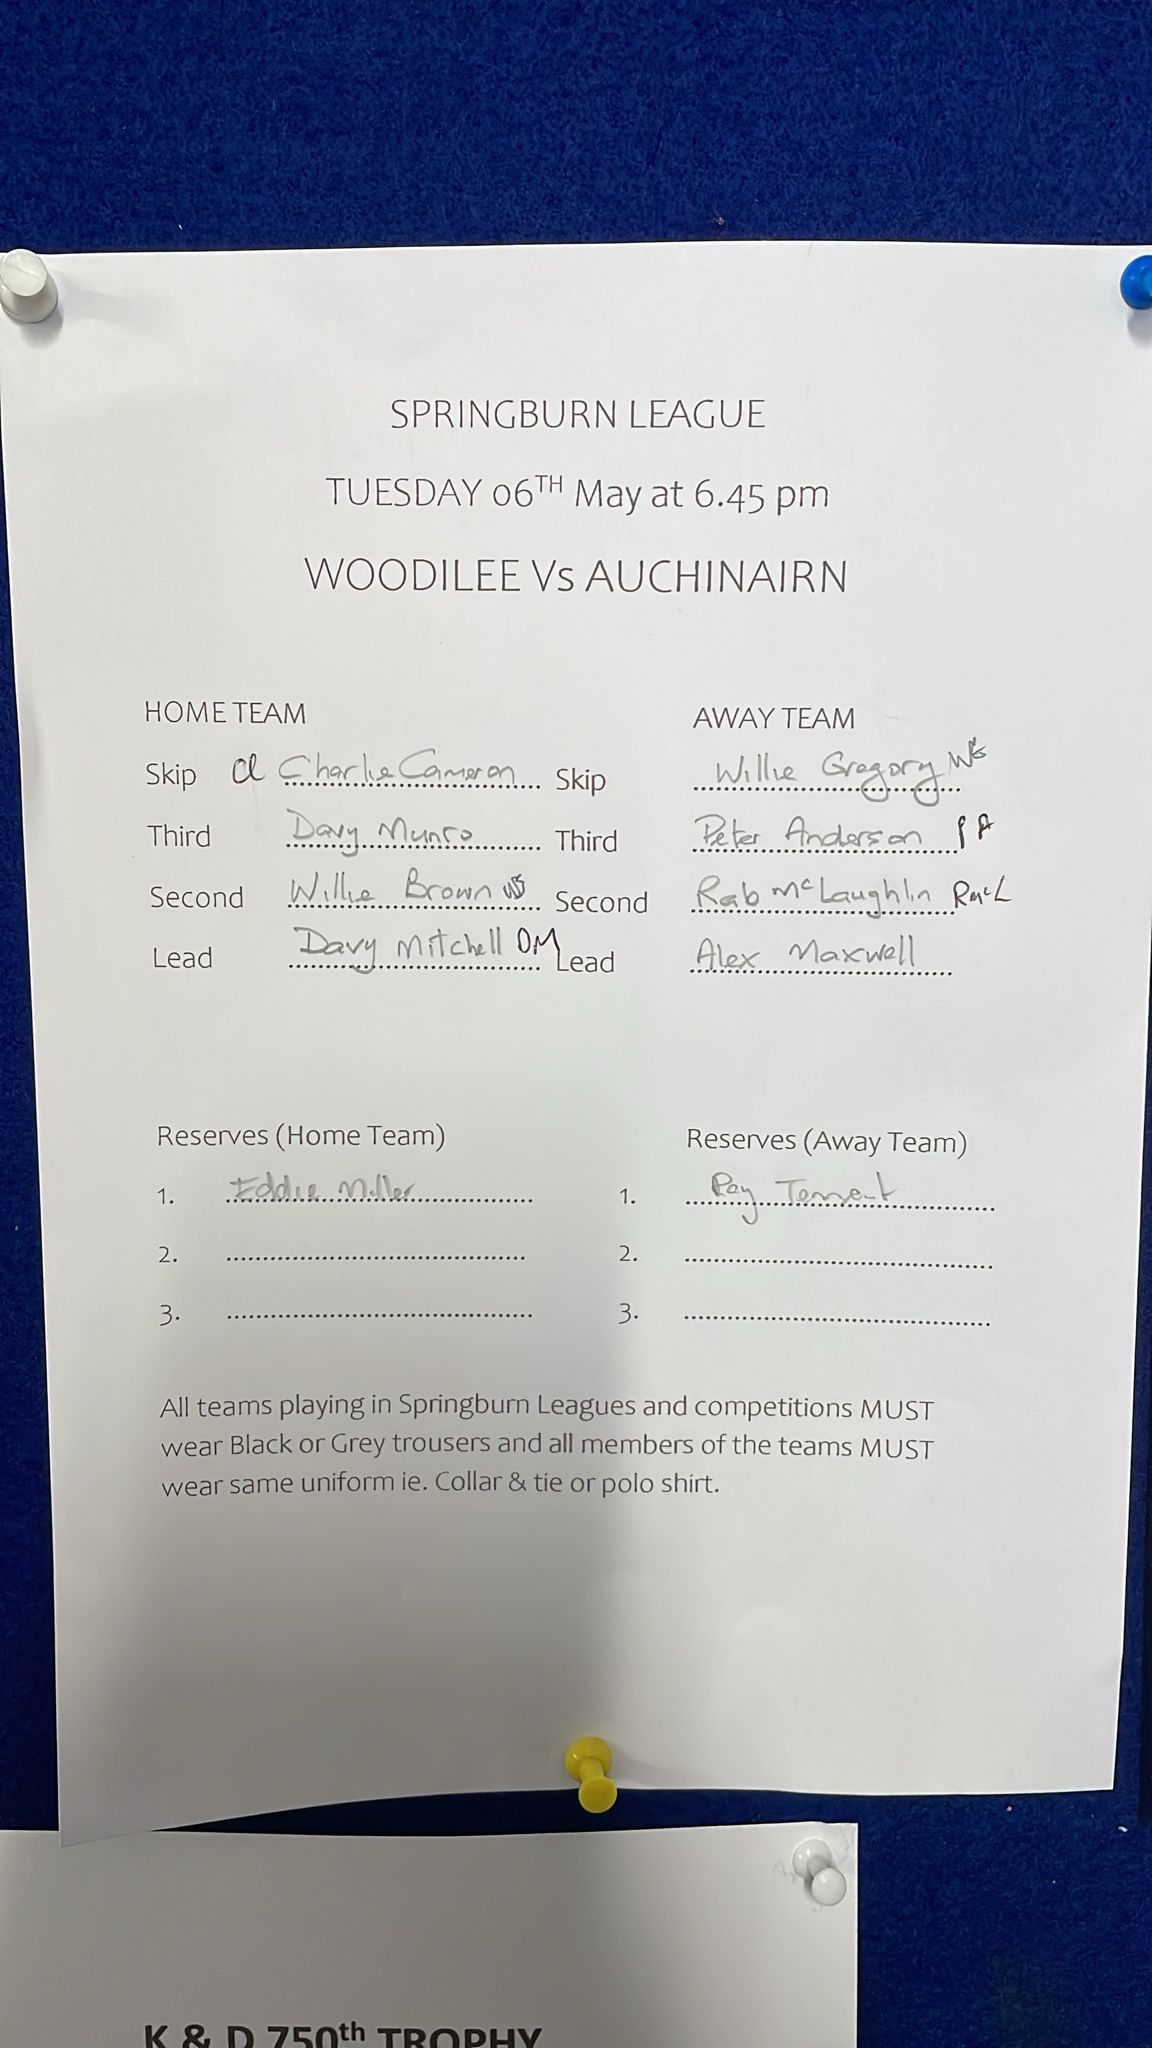 SPRINGBURN LEAGUE
TUESDAY 06TH May at 6.45 pm
WOODILEE Vs AUCHINAIRN
HOME TEAM AWAY TEAM
Skip Charlie Cameron Skip Willie Gregory WG
Third Davy Munro Third Peter Anderson PA
Second Willie Brown WB Second Rab McLaughlin RMcL
Lead Davy Mitchell DM Lead Alex Maxwell
Reserves (Home Team) Reserves (Away Team)
1. Eddie Miller 1. Ray Tennent
2. 2.
3. 3.
All teams playing in Springburn Leagues and competitions MUST
wear Black or Grey trousers and all members of the teams MUST
wear same uniform ie. Collar & tie or polo shirt.
K & D 750th TROPHY